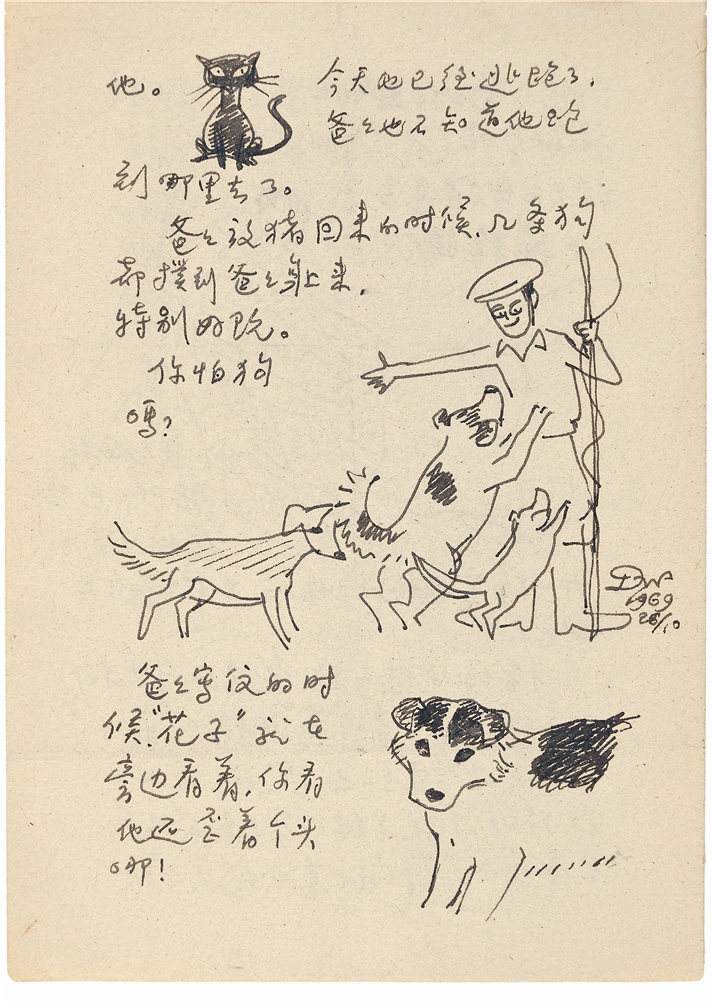 他。 今天他已经逃跑了，
爸爸也不知道他跑
到哪里去了。
爸々放猪回来的时候，几条狗
都撲到爸々身上来，
特别好玩。
你怕狗
吗？
DW
1969
28/10
爸々写信的时
候，“花子”就在
旁边看着，你看
他还歪着个头
哪！